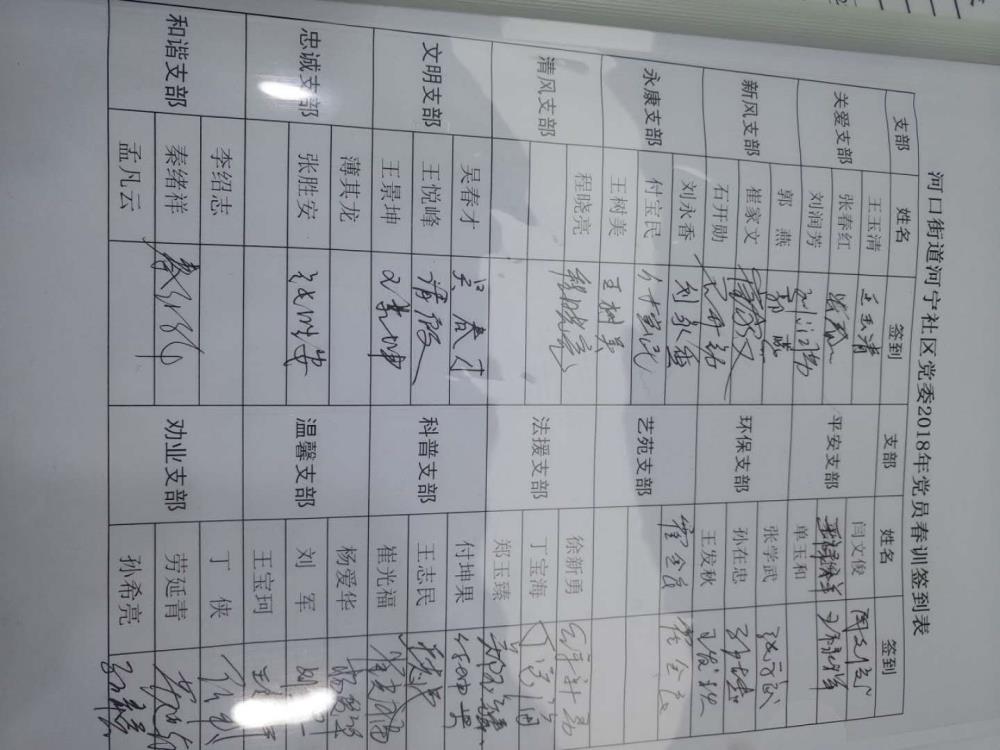 河口街道河宁社区党委2018年党员春训签到表
支部 姓名 签到 支部 姓名 签到
关爱支部 王玉清 王玉清 平安支部 闫文俊 闫文俊
张春红 单玉和
刘润芳 刘润芳 环保支部 张学武 张学武
新风支部 郭燕 郭燕 孙在忠
崔家文 崔家文 王发秋 王发秋
石开勋 艺苑支部
永康支部 刘永香 刘永香
付宝民 付宝民
王树美 王树美 法援支部 徐新勇
清风支部 程晓亮 程晓亮 丁宝海
郑玉臻
文明支部 吴春才 吴春才 科普支部 付坤果 付坤果
王悦峰 请假 王志民
王景坤 王景坤 崔光福 崔光福
忠诚支部 薄其龙 温馨支部 杨爱华 杨爱华
张胜安 张胜安 刘军
王宝珂
和谐支部 李绍志 劝业支部 丁侠
秦绪祥 劳延青
孟凡云 孙希亮